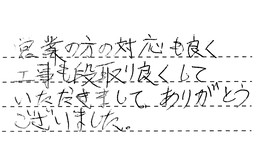 営業の方の対応も良く
工事も段取り良くして
いただきまして、ありがとう
ございました。